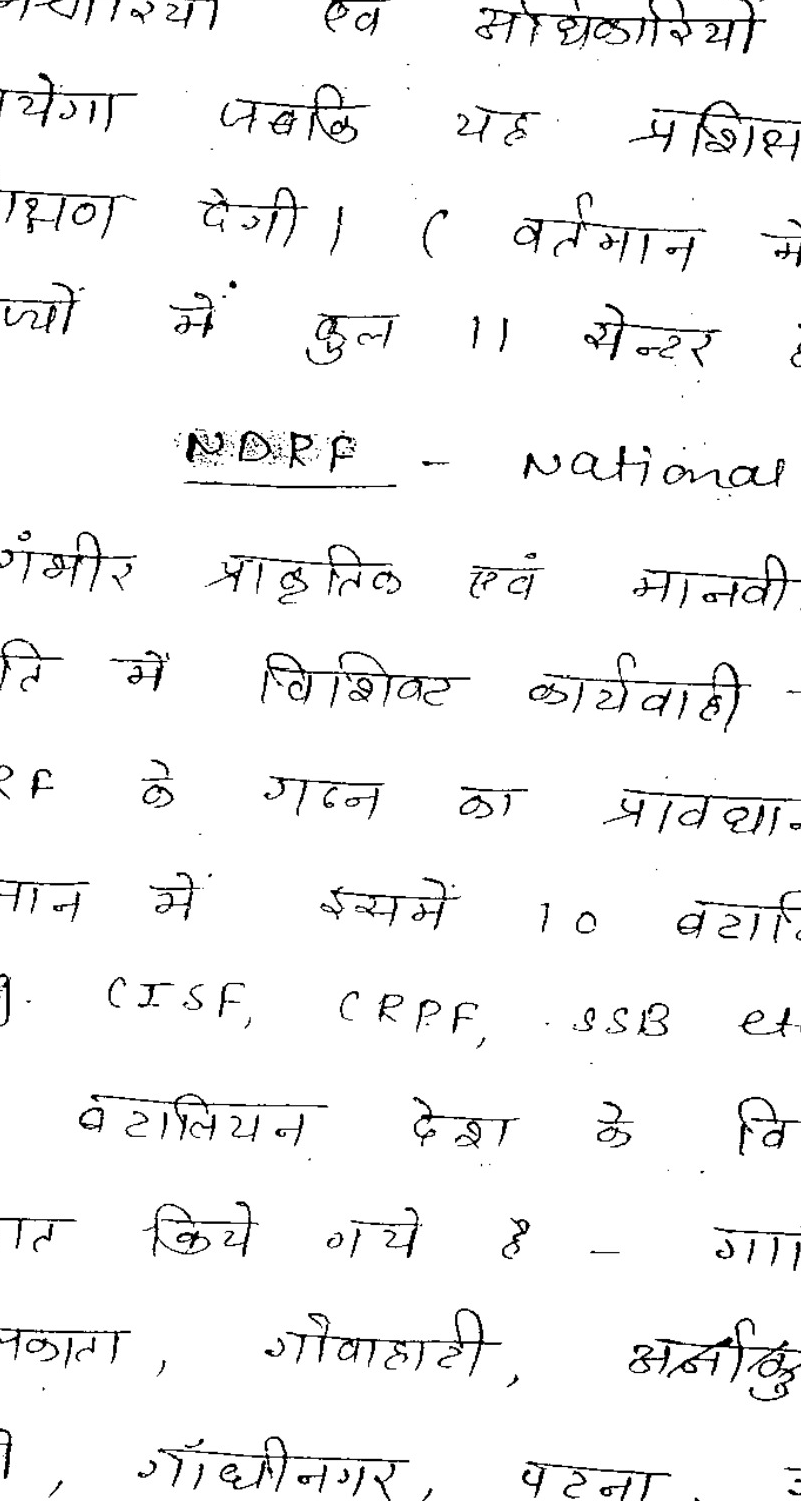 एवं अधिकारियों
येगा जबकि यह प्रशिक्ष
क्षण देगी। ( वर्तमान में
ज्यों में कुल 11 सेन्टर
NDRF - National
गंभीर प्राकृतिक एवं मानवी
ति में विशिष्ट कार्यवाही -
RF के गठन का प्रावधान
मान में इसमें 10 बटालि
g. CISF, CRPF, SSB etc
बटालियन देश के वि
ात किये गये है - गा
लकाता, गोवाहाटी,
, गाँधीनगर, पटना,